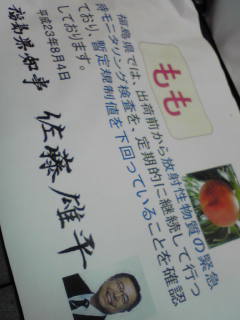 もも
福島県では、出荷前から放射性物質の緊急
時モニタリング検査を、定期的に継続して行っ
ており、暫定規制値を下回っていることを確認
しております。
平成23年8月4日
福島県知事 佐藤雄平